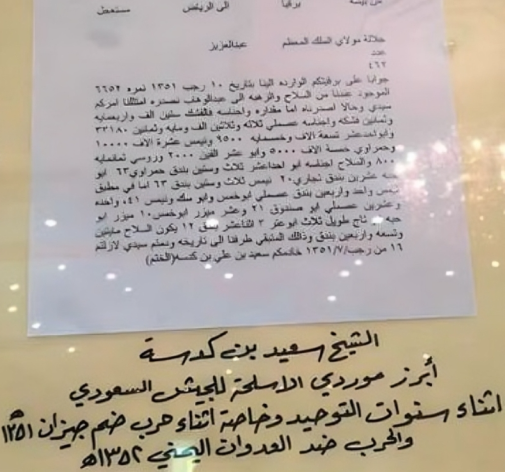 من بيشه برقيا الى الرياض مستعجل
جلالة مولاي الملك المعظم عبدالعزيز
عدد
٤٦٢
جوابا على برقيتكم الوارده الينا بتاريخ ١٠ رجب ١٣٥١ نمره ٦٦٥٢
الموجود عندنا من السلاح والزهبه الى عبدالوهاب نصدره امتثلنا امركم
سيدي وحالا اصدرناه اما مقداره واجناسه فالفشك ستين الف واربعمايه
وثمانين فشكه واجناسه عصملي ثلاثه وثلاثين الف ومايه وثمانين ٣٣١٨٠
وابواحدعشر تسعة الاف وخمسمايه ٩٥٠٠ ونيمس عشرة الاف ١٠٠٠٠
وحمراوي خمسة الاف ٥٠٠٠ وابو عشر الفين ٢٠٠٠ وروسي ثمانمايه
٨٠٠ والسلاح اجناسه ابو احداعشر ثلاث وستين بندق حمراوي ٦٣ ابو
حبه عشرين بندق نجاري ٢٠ نيمس ثلاث وستين بندق ٦٣ اما في مطبق
نيمس واحد واربعين بندق عصملي ابوخمس وابو سك ونيمس ٤١ واحده
وعشرين عصملي ابو صندوق ٢١ وعشر ميزر ابوخمس ١٠ ميزر ابو
حبه تاج طويل ثلاث ابوعشر ٣ اثناعشر بندق ١٢ يكون السلاح مايتين
وتسعه واربعين بندق وذالك المتبقي طرفنا الى تاريخه ودمتم سيدي لازلتم
١٦ من رجب/١٣٥١/٧ خادمكم سعيد بن علي بن كدسه(الختم)
الشيخ سعيد بن كدسة
أبرز موردي الاسلحة للجيش السعودي
اثناء سنوات التوحيد وخاصة اثناء حرب ضم جيزان ١٣٥١هـ
والحرب ضد العدوان اليمني ١٣٥٢هـ